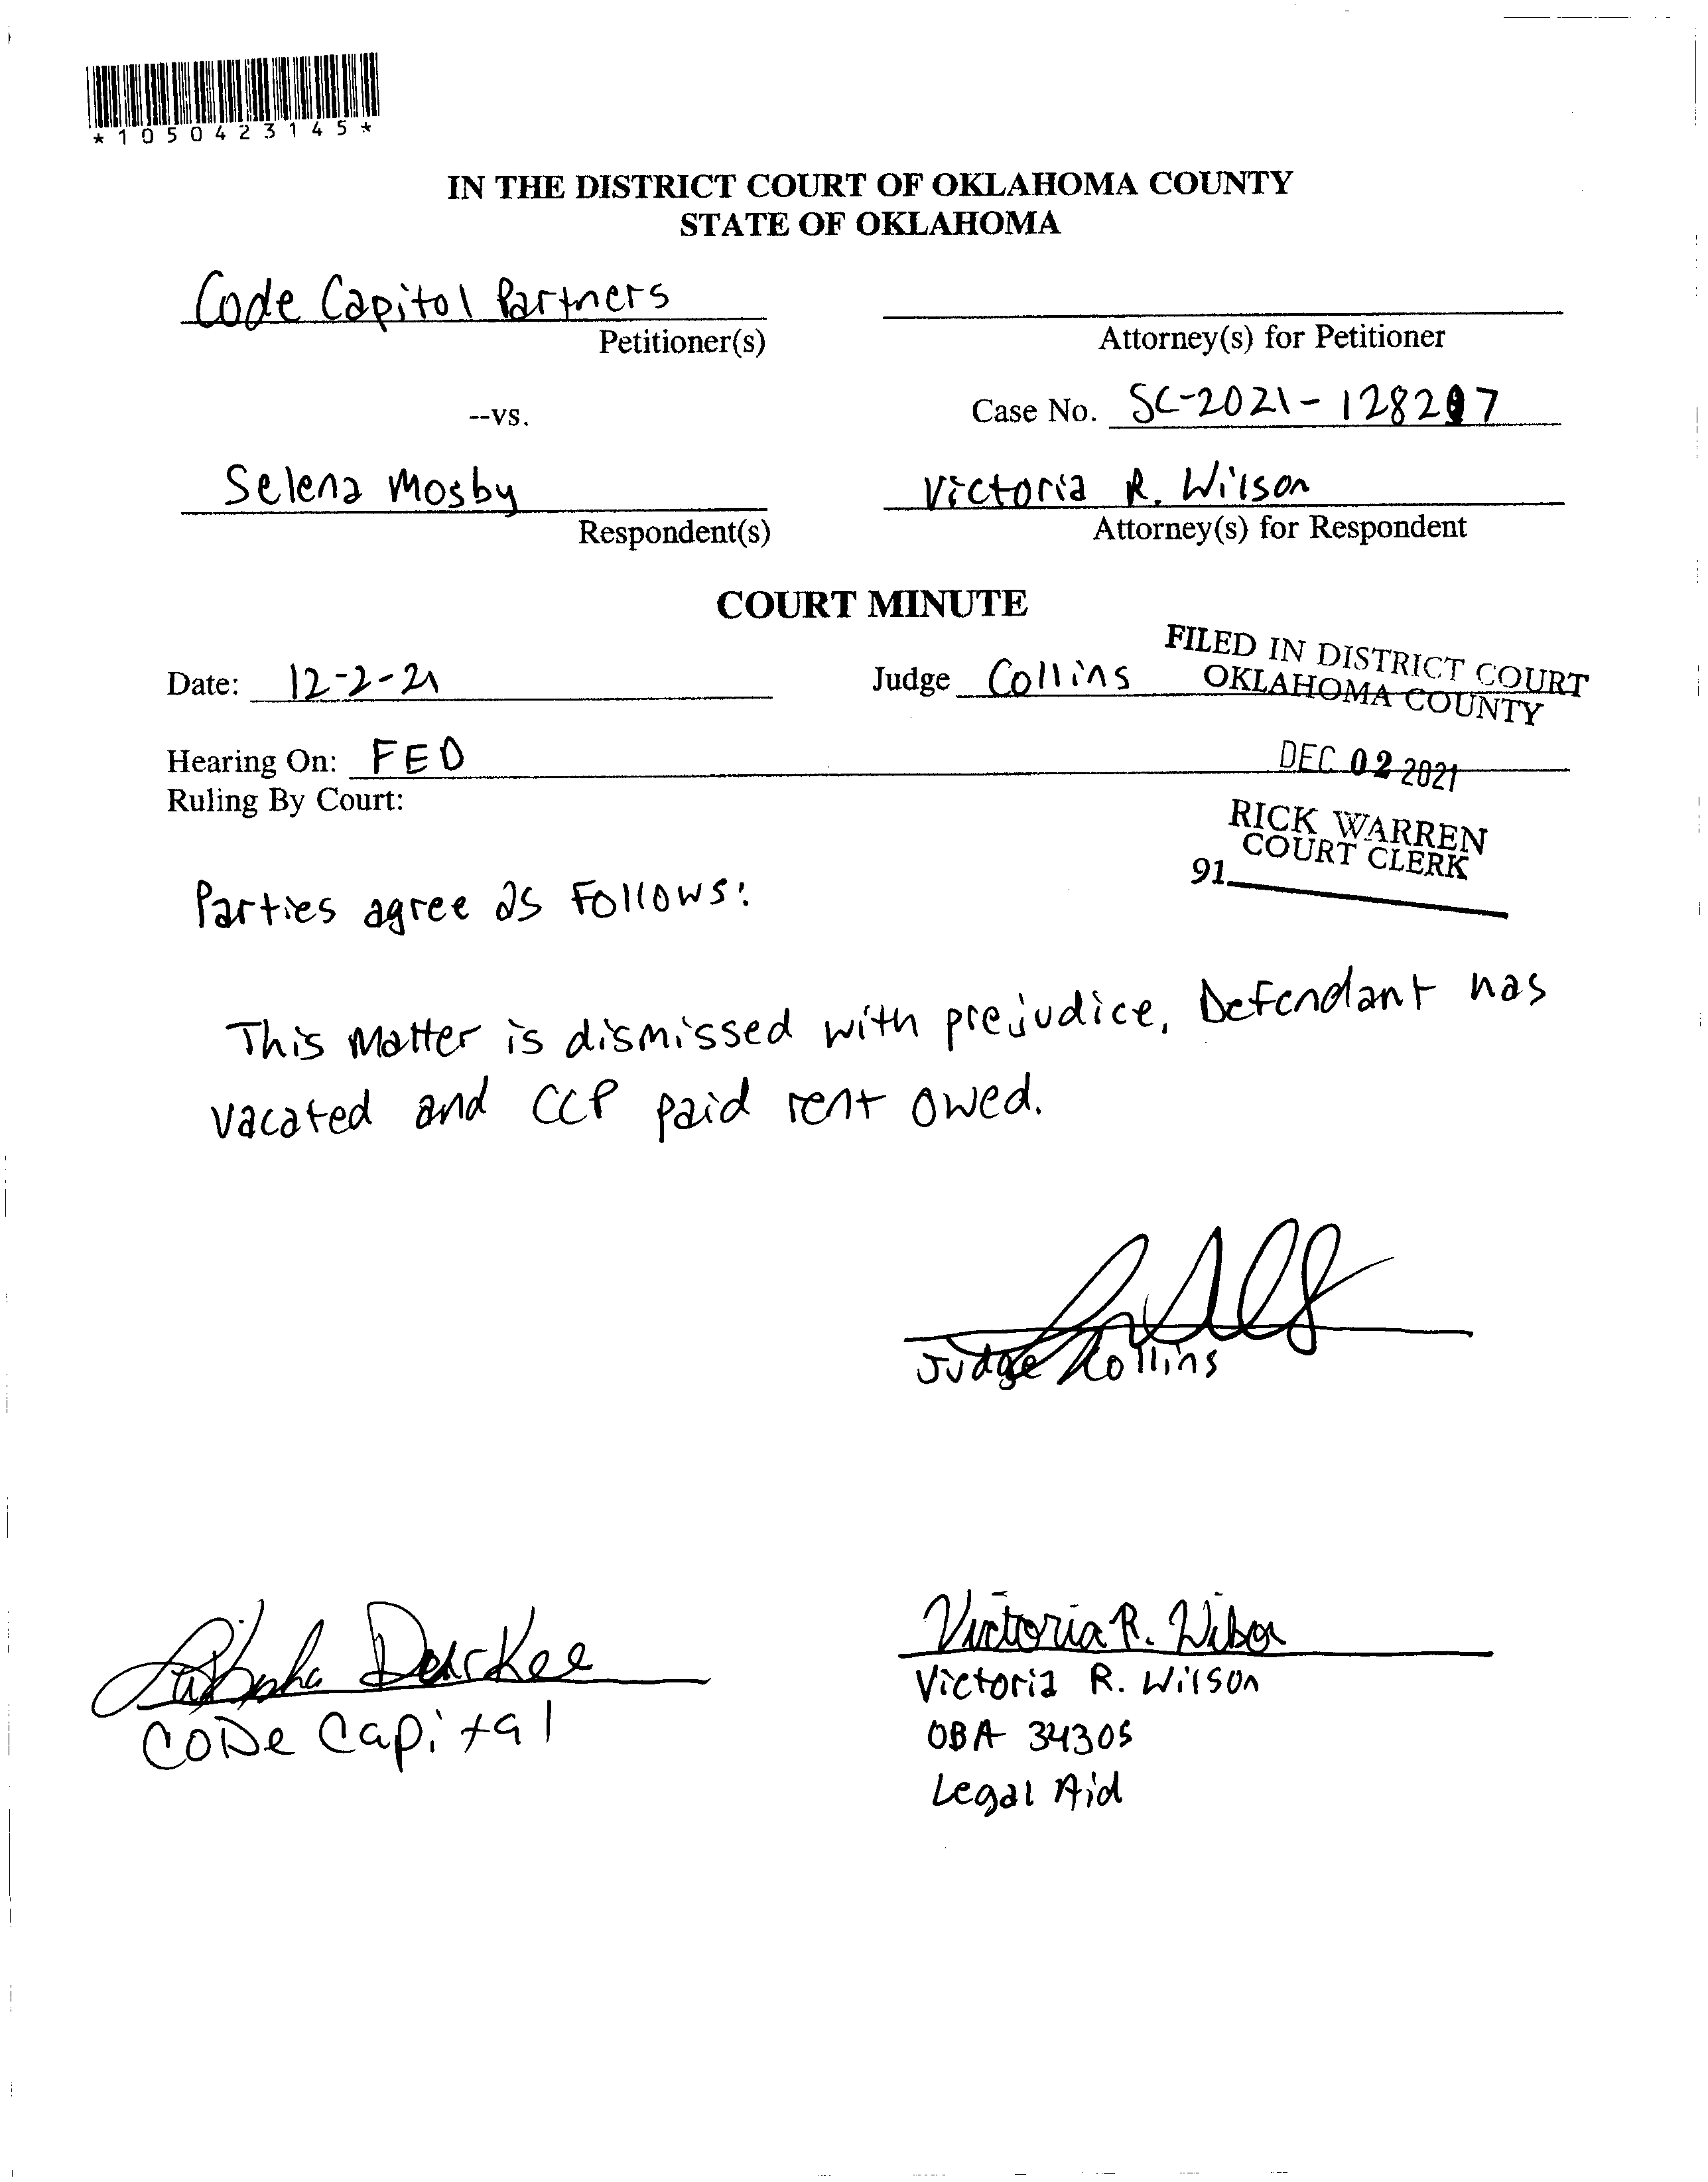 *1050423145*
IN THE DISTRICT COURT OF OKLAHOMA COUNTY
STATE OF OKLAHOMA
Code Capitol Partners
Petitioner(s)
Attorney(s) for Petitioner
--vs.
Case No. SC-2021-128297
Selena Mosby
Respondent(s)
Victoria R. Wilson
Attorney(s) for Respondent
COURT MINUTE
FILED IN DISTRICT COURT
OKLAHOMA COUNTY
Date: 12-2-21
Judge Collins
Hearing On: FED
DEC 02 2021
Ruling By Court:
RICK WARREN
COURT CLERK
91
Parties agree as Follows:
This Matter is dismissed with prejudice. Defendant has
vacated and CCP paid rent owed.
Judge Collins
Code Capital
Victoria R. Wilson
Victoria R. Wilson
OBA 34305
Legal Aid